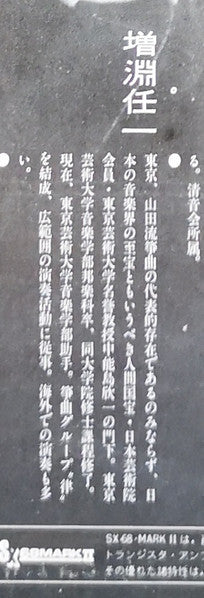 る。清音会所属。
●
増淵任一
東京、山田流箏曲の代表的存在であるのみならず、日
本の音楽界の至宝ともいうべき人間国宝・日本芸術院
会員・東京芸術大学名誉教授中能島欣一の門下。東京
芸術大学音楽学部邦楽科卒、同大学院修士課程修了。
現在、東京芸術大学音楽学部助手。箏曲グループ“律”
を結成、広範囲の演奏活動に従事。海外での演奏も多
い。
●
SX68MARKⅡ
SX-68・MARKⅡは、
トランジスタ・アンプ
その優れた諸特性は、